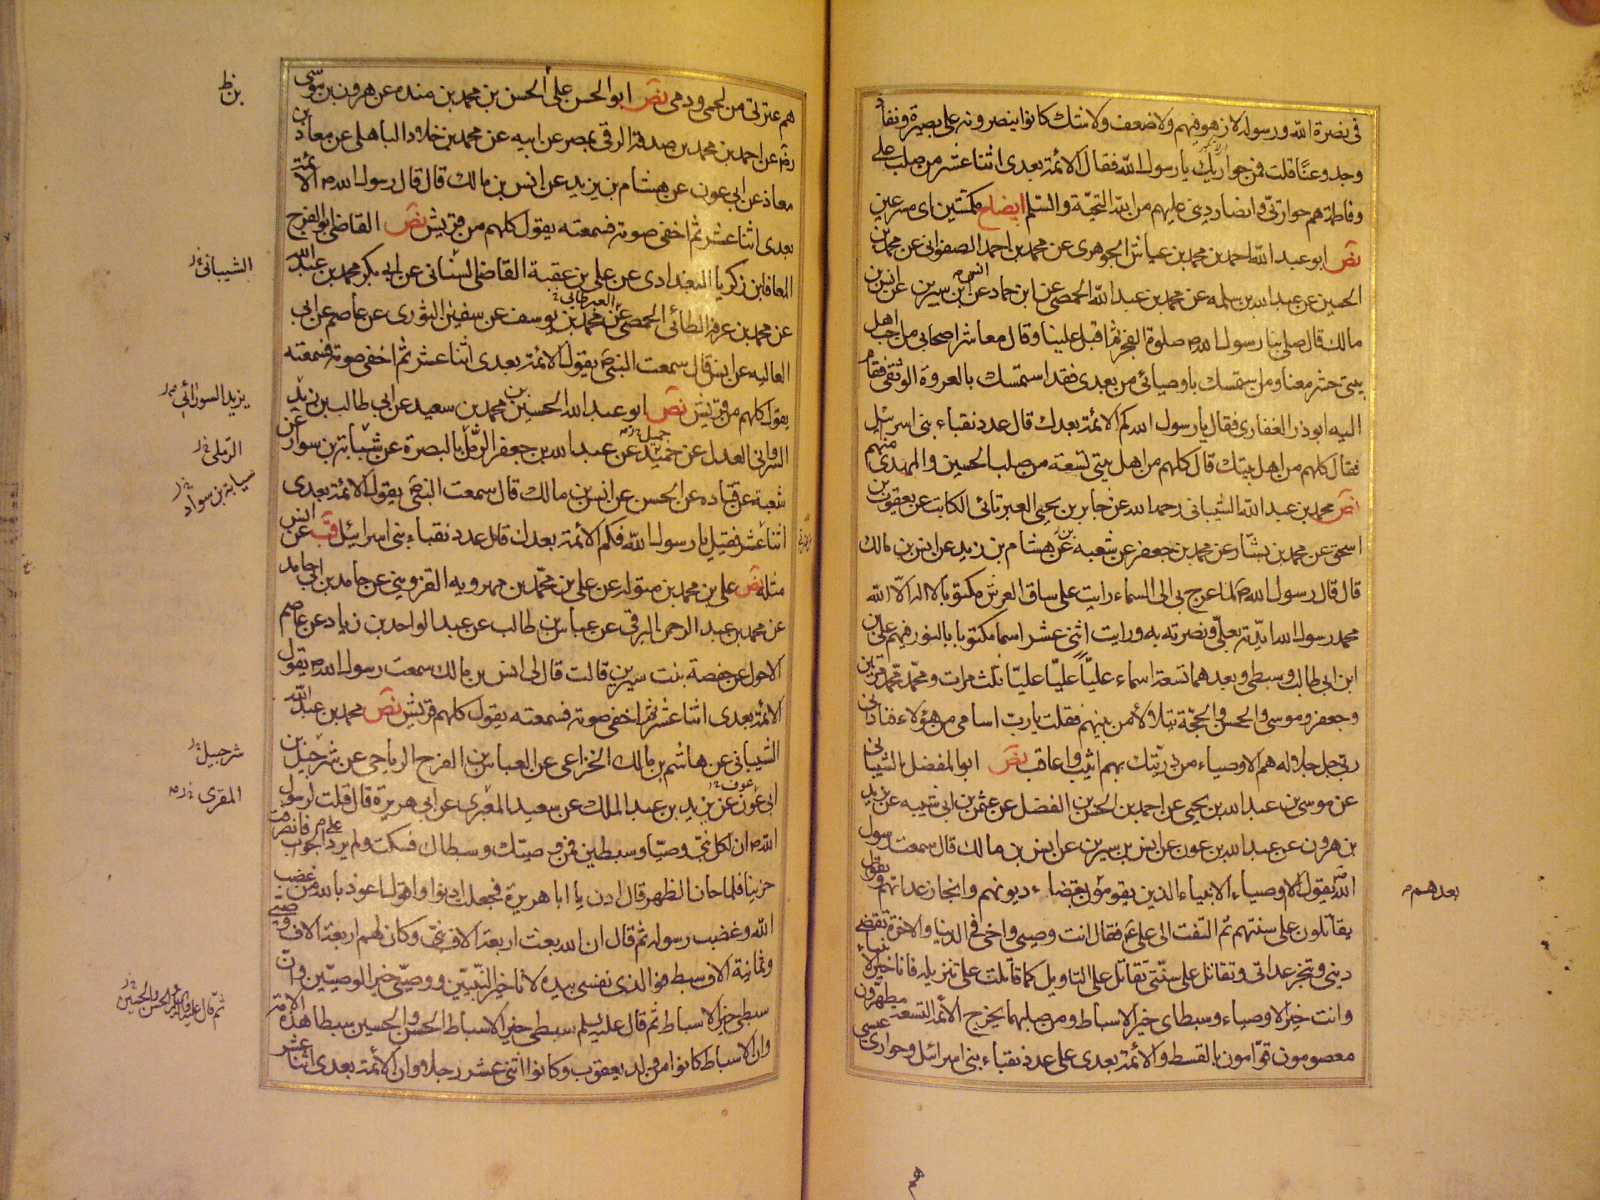 فى نصرة الله ورسوله لا زهو فيهم ولا ضعف ولا شك كانوا ينصرونه على بصيرة ونفاد
وجد وعنا قلت فمن حواريك يا رسول الله فقال الائمة بعدى اثنا عشر من صلب على
وفاطمة هم حواريى وانصار دينى عليهم من الله التحية والسلم ايضاح
نص ابو عبد الله احمد بن محمد بن عياش الجوهرى عن محمد بن احمد الصفوانى عن محمد بن
الحسين عن عبد الله بن سلمه عن محمد بن عبد الله الحمصى عن ابن حماد عن انس بن سيرين عن انس بن
مالك قال صلى بنا رسول الله ص صلوة الفجر ثم اقبل علينا وقال معاشر اصحابى من احب اهل
بيتى حشر معنا ومن استمسك باوصيائى من بعدى فقد استمسك بالعروة الوثقى فقام
اليه ابو ذر الغفارى فقال يا رسول الله كم الائمة بعدك قال عدد نقباء بنى اسرئيل
فقال كلهم من اهل بيتك قال كلهم من اهل بيتى تسعة من صلب الحسين والمهدى منهم
نص محمد بن عبد الله الشيبانى رحمه الله عن جابر بن يحيى العبرتائى الكاتب عن يعقوب بن
اسحق عن محمد بن بشار عن محمد بن جعفر عن شعبه عن هشام بن زيد عن انس بن مالك
قال قال رسول الله ص لما عرج بى الى السماء رايت على ساق العرش مكتوبا لا اله الا الله
محمد رسول الله ايدته بعلى ونصرته به ورايت اثنى عشر اسما مكتوبا بالنور فيهم على بن
ابى طالب وسبطى وبعدهما تسعة اسماء عليا عليا عليا ثلث مرات ومحمد محمد مرتين
وجعفر وموسى والحسن والحجة يتلألأ من بينهم فقلت يا رب اسامى من هؤلاء فنادانى
ربى جل جلاله هم الاوصياء من ذريتك بهم اثيب واعاقب نص ابو المفضل الشيبانى
عن موسى بن عبد الله بن يحيى عن احمد بن الحسن بن الفضل عن عثمن بن ابى شيبه عن يزيد
بن هرون عن عبد الله بن عون عن انس بن سيرين عن انس بن مالك قال سمعت رسول
الله يقول الاوصياء الانبياء الذين يقومون بقضاء ديونهم وانجاز عداتهم ويقول
بعدهم
يقاتلون على سنتهم ثم التفت الى على ع فقال انت وصيى واخى فى الدنيا والاخرة تقضى
دينى وتنجز عداتى وتقاتل على سنتى تقاتل على التاويل كما قاتلت على تنزيله فانا خير الانبياء
وانت خير الاوصياء وسبطاى خير الاسباط ومن صلبهما يخرج الائمة التسعة مطهرون
معصومون قوامون بالقسط والائمة بعدى على عدد نقباء بنى اسرائيل وحوارى عيسى
هم
هم عترتى من لحمى ودمى نص ابو الحسن على الحسن بن محمد بن منده عن هرون بن موسى
عن احمد بن محمد بن صدقة الرقى بمصر عن ابيه عن محمد بن خلاد الباهلى عن معاذ بن
معاذ عن ابى عون عن هشام بن يزيد عن انس بن مالك قال قال رسول الله ص الائمة
بعدى اثنا عشر ثم اخفى صوته فسمعته يقول كلهم من قريش نص القاضى ابو الفرج
المعافا بن زكريا البغدادى عن على بن عقبة القاضى الشنانى عن ابى بكر محمد بن عبد الله
الشيبانى
عن محمد بن عرفة الطائى الحمصى عن محمد بن يوسف عن سفين الثورى عن عاصم عن ابى
العاليه عن انس قال سمعت النبى ص يقول الائمة بعدى اثنا عشر ثم اخفى صوته فسمعته
يقول كلهم من قريش نص ابو عبد الله الحسين بن محمد بن سعيد عن ابى طالب بن زيد
العدل عن حميد عن عبد الله بن جعفر الرملى بالبصرة عن شبابة بن سوار عن
الرملى
شعبة عن قتاده عن الحسن عن انس بن مالك قال سمعت النبى ص يقول الائمة بعدى
اثنا عشر فقيل يا رسول الله فكم الائمة بعدك قال عدد نقباء بنى اسرائيل قب عن انس
مثله نص على بن محمد بن متوله عن على بن محمد بن مهرويه القزوينى عن حامد بن ابى حامد
عن محمد بن عبد الرحمن الرقى عن عباس بن طالب عن عبد الواحد بن زياد عن عاصم
الاحول عن حفصة بنت سيرين قالت قال لى انس بن مالك سمعت رسول الله ص يقول
الائمة بعدى اثنا عشر ثم اخفى صوته فسمعته يقول كلهم قريش نص محمد بن عبد الله
الشيبانى عن هاشم بن مالك الخزاعى عن العباس بن الفرج الرياحى عن شرحبيل بن
شرجبيل
ابى عون عن يزيد بن عبد الملك عن سعيد المغبرى عن ابى هريرة قال قلت لرسول
المقرى
الله ص ان لكل نبى وصيا وسبطين فمن وصيتك وسبطاك فسكت ولم يرد على الجواب فانصرفت
حزينا فلما حان الظهر قال ادن يا ابا هريرة فجعلت ادنوا واقول اعوذ بالله من غضب
الله وغضب رسوله ثم قال ان الله بعث اربعة الاف نبى وكان لهم اربعة الاف وصى
وثمانية الاف سبط فو الذى نفسى بيده لانا خير النبيين ووصيى خير الوصيين وان
سبطى خير الاسباط ثم قال عليه السلم سبطى خير الاسباط الحسن والحسين سبطا هذه الامة
وان الاسباط كانوا من ولد يعقوب وكانوا اثنى عشر رجلا وان الائمة بعدى اثنا عشر